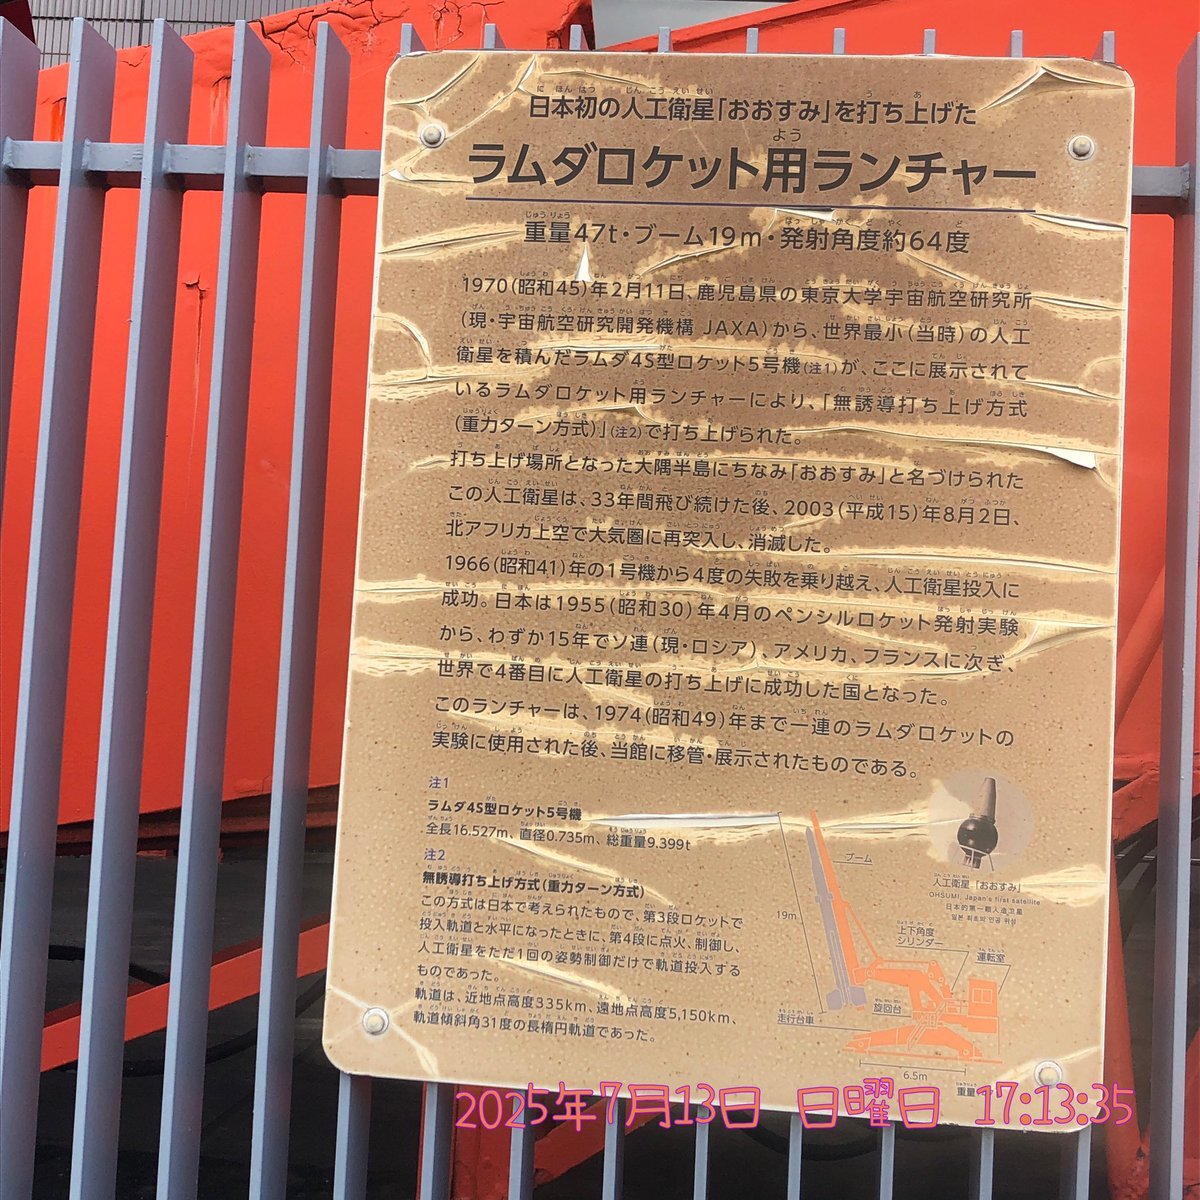 日本初の人工衛星「おおすみ」を打ち上げた
ラムダロケット用ランチャー
重量47t・ブーム19m・発射角度約64度
1970(昭和45)年2月11日、鹿児島県の東京大学宇宙航空研究所
(現・宇宙航空研究開発機構 JAXA)から、世界最小(当時)の人工
衛星を積んだラムダ4S型ロケット5号機(注1)が、ここに展示されて
いるラムダロケット用ランチャーにより、「無誘導打ち上げ方式
(重力ターン方式)」(注2)で打ち上げられた。
打ち上げ場所となった大隅半島にちなみ「おおすみ」と名づけられた
この人工衛星は、33年間飛び続けた後、2003(平成15)年8月2日、
北アフリカ上空で大気圏に再突入し、消滅した。
1966(昭和41)年の1号機から4度の失敗を乗り越え、人工衛星投入に
成功。日本は1955(昭和30)年4月のペンシルロケット発射実験
から、わずか15年でソ連(現・ロシア)、アメリカ、フランスに次ぎ、
世界で4番目に人工衛星の打ち上げに成功した国となった。
このランチャーは、1974(昭和49)年まで一連のラムダロケットの
実験に使用された後、当館に移管・展示されたものである。
注1
ラムダ4S型ロケット5号機
全長16.527m、直径0.735m、総重量9.399t
注2
無誘導打ち上げ方式(重力ターン方式)
この方式は日本で考えられたもので、第3段ロケットで
投入軌道と水平になったときに、第4段に点火、制御し、
人工衛星をただ1回の姿勢制御だけで軌道投入する
ものであった。
軌道は、近地点高度335km、遠地点高度5,150km、
軌道傾斜角31度の長楕円軌道であった。
ブーム
19m
人工衛星「おおすみ」
OHSUMI, Japan's first satellite
日本的第一颗人造卫星
일본 최초의 인공 위성
上下角度
シリンダー
運転室
旋回台
走行台車
6.5m
重量
2025年7月13日 日曜日 17:13:35